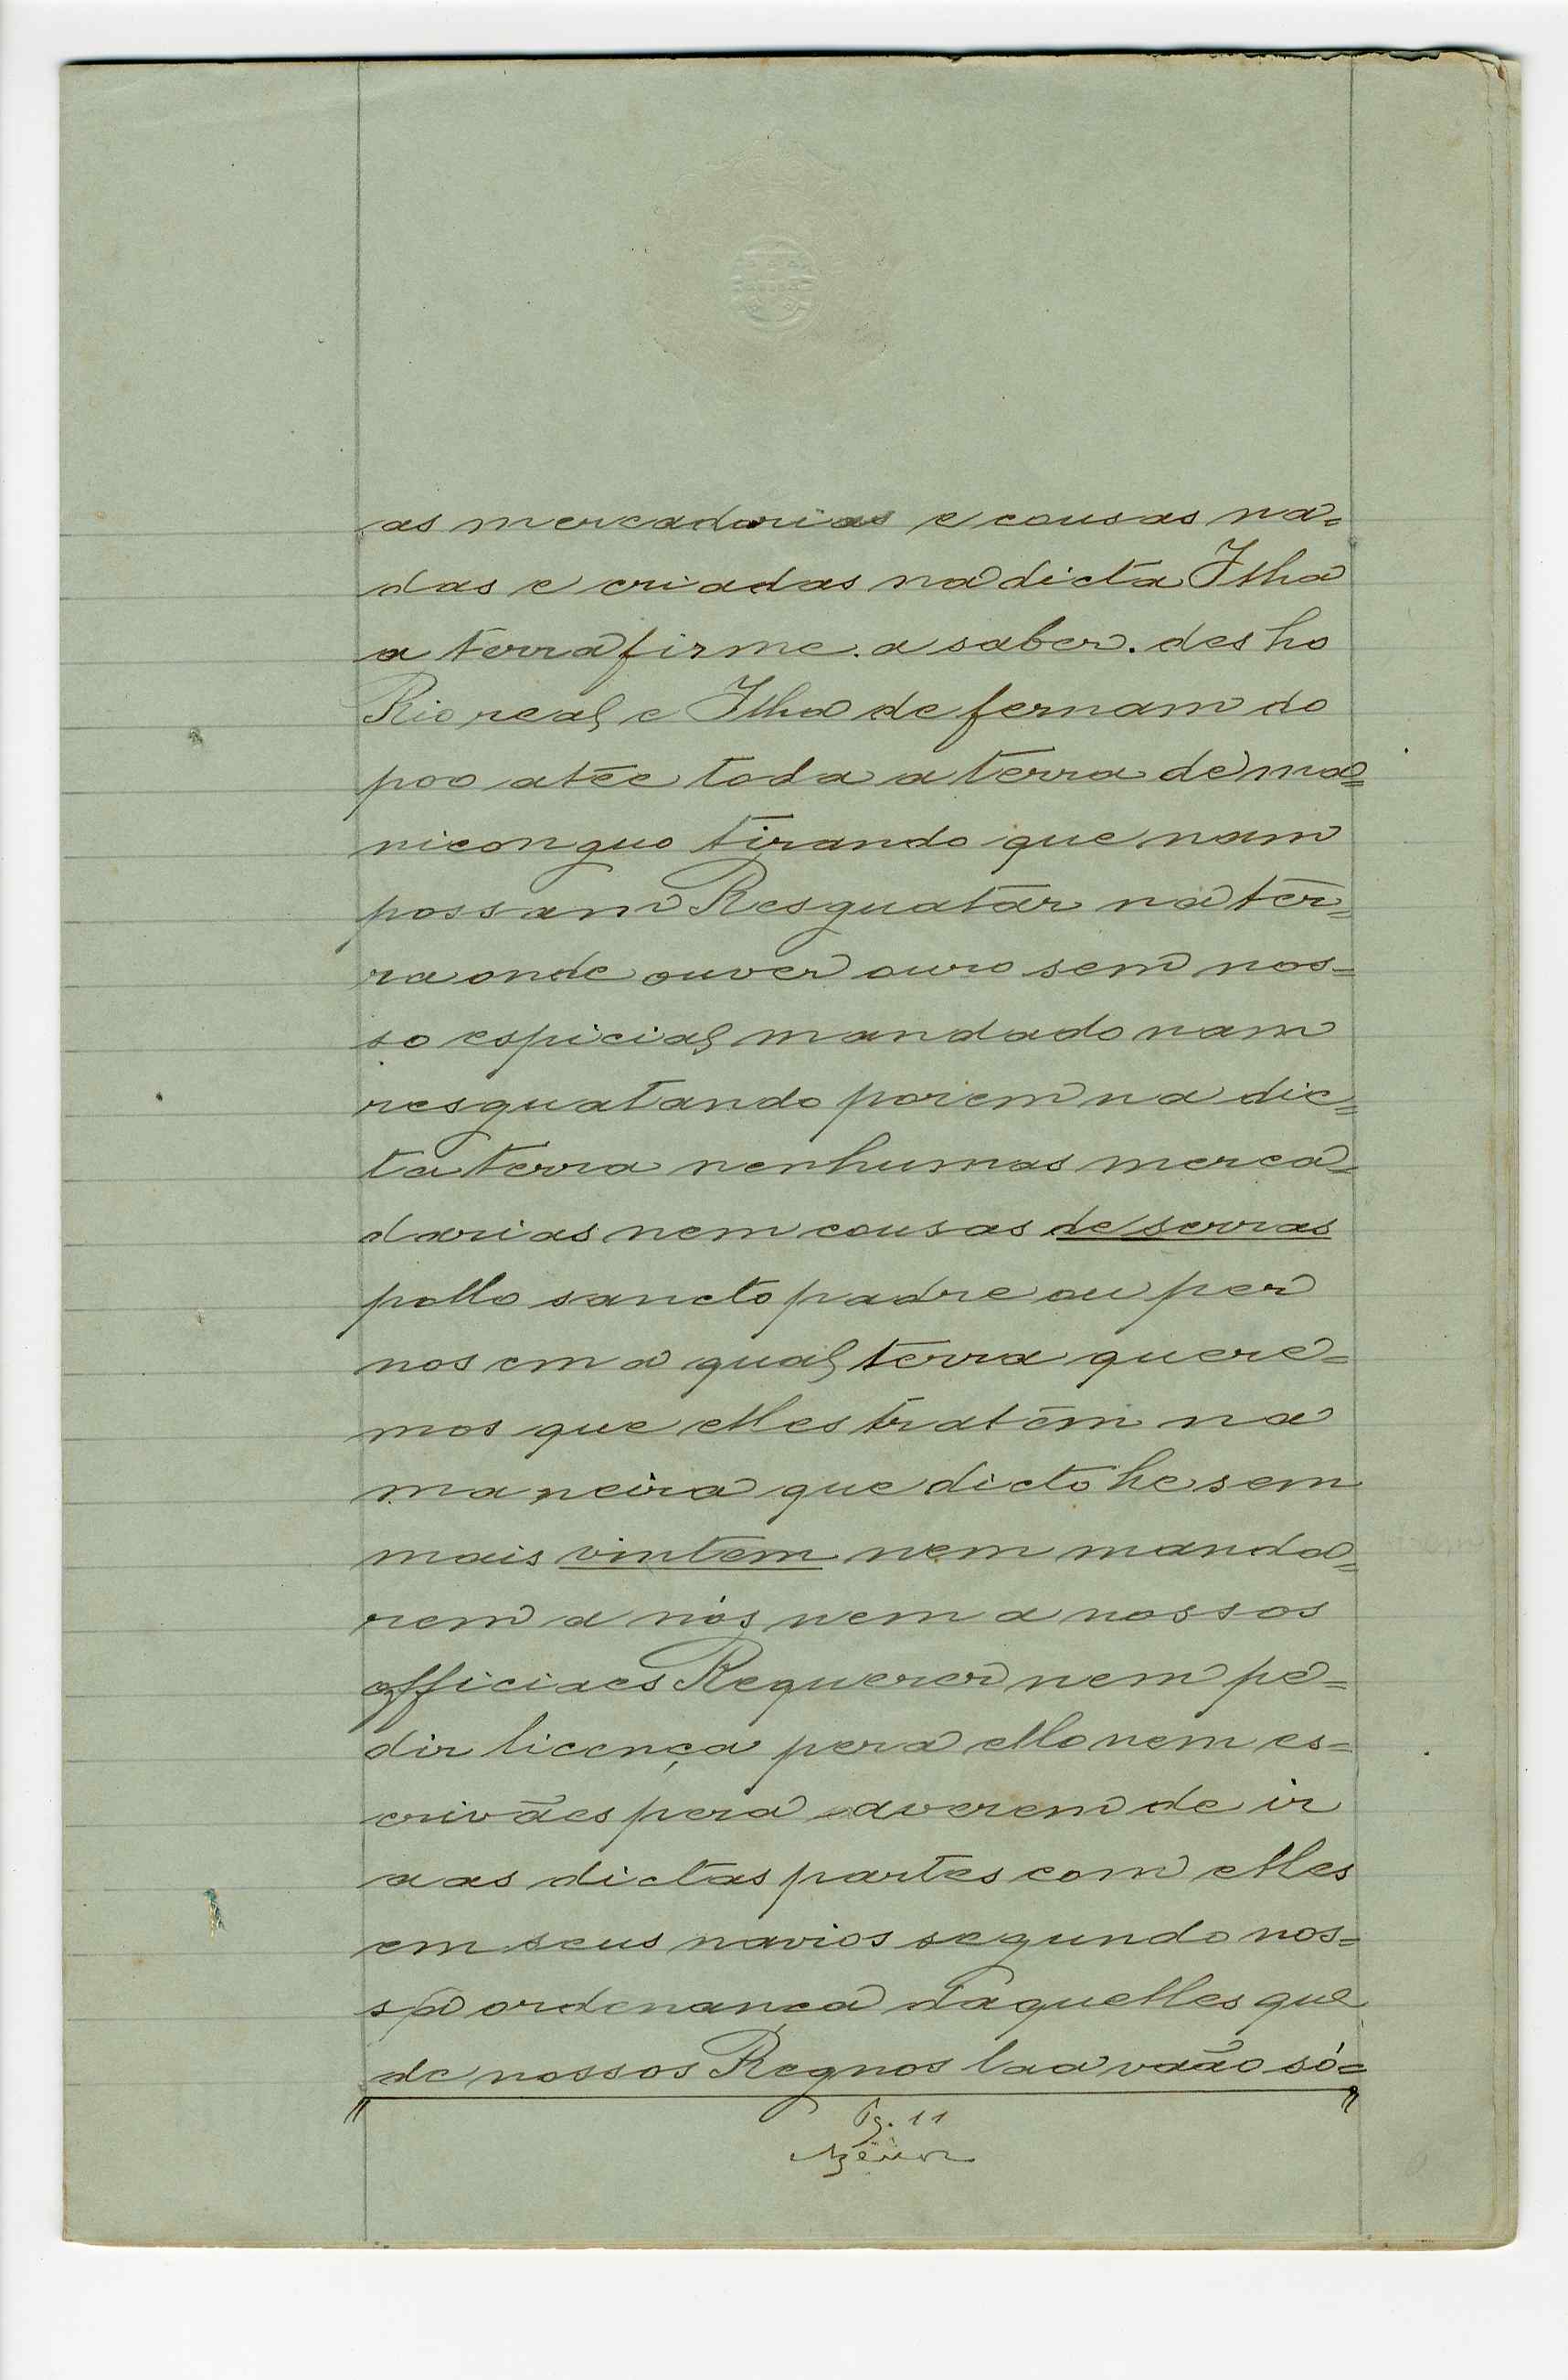 as mercadarias e cousas na=
das e criadas na dicta Ilha
a terra firme. a saber. des ho
Rio real e Ilha de fernam do
poo atée toda a terra de ma=
niconguo tirando que nam
possam Resguatar na ter=
ra onde ouver ouro sem nos=
so espicial mandado nam
resguatando porem na dic=
ta terra nenhumas merca=
darias nem cousas de serras
pollo sancto padre ou per
nos em a qual terra quere=
mos que elles tratem na
maneira que dicto he sem
mais vintem nem manda=
rem a nós nem a nossos
officiaes Requerer nem pe=
dir licença pera ello nem es=
crivães pera averem de ir
a as dictas partes com elles
em seus navios segundo nos=
sa ordenança daquelles que
de nossos Regnos laa vaão só=
Pg. 11